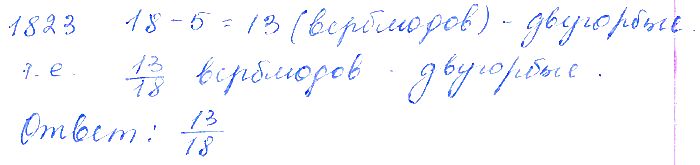 1823 18 - 5 = 13 (верблюдов) - двугорбые.
т.е. 13/18 верблюдов - двугорбые.
Ответ: 13/18